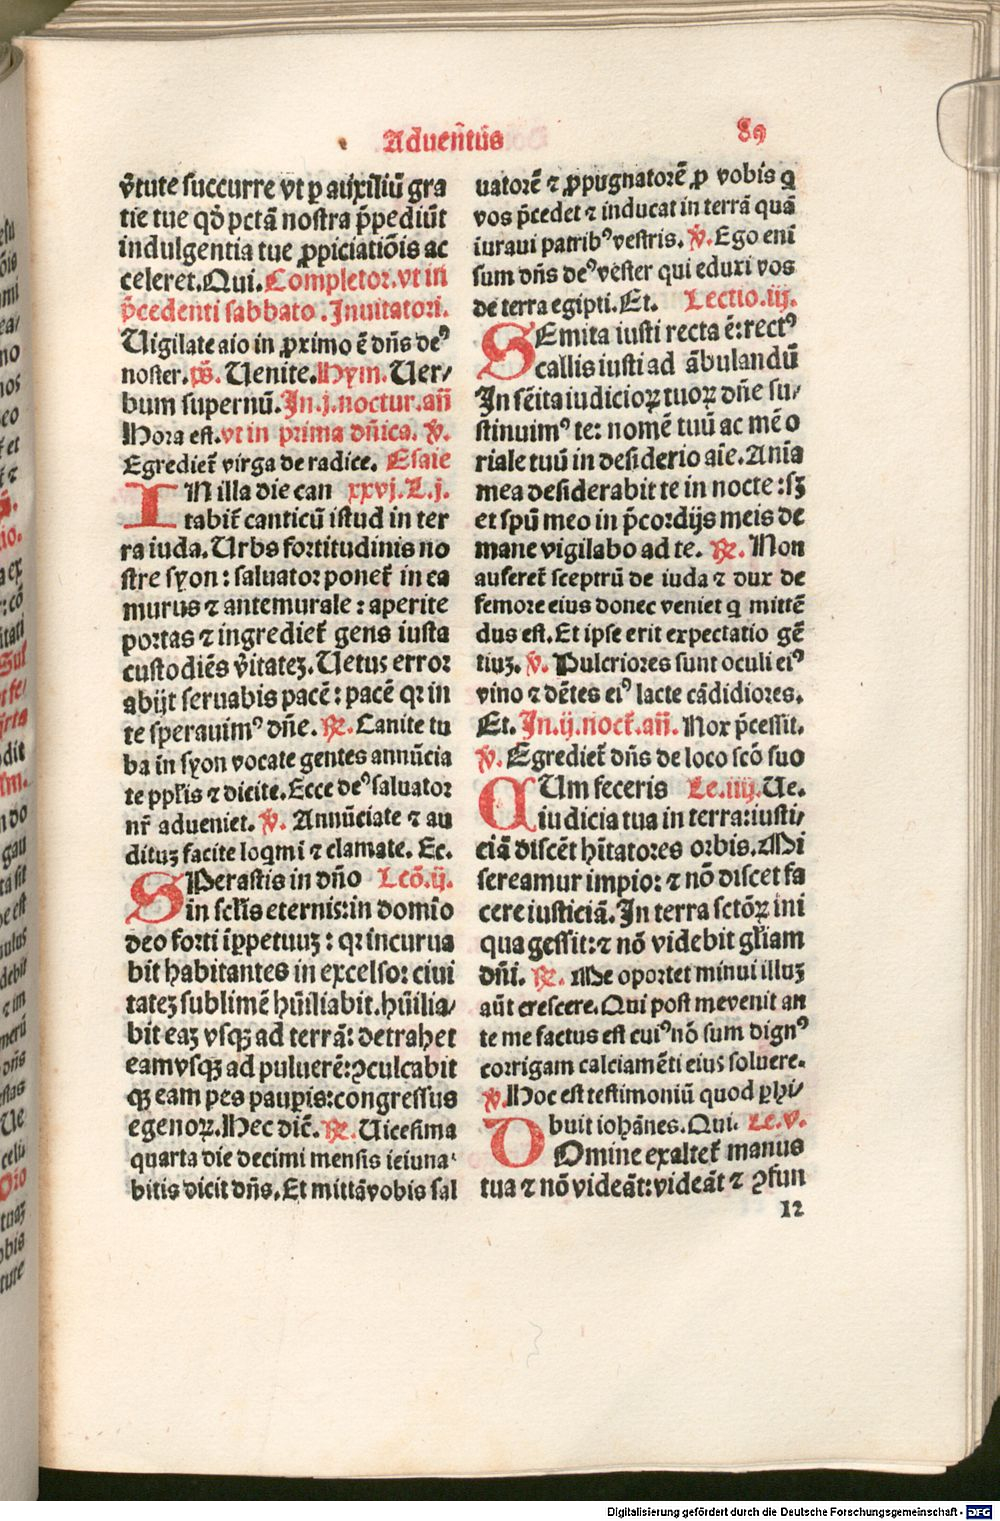 Aduen̄tus̄
89
v̄tute succurre vt ꝑ auxiliū gra
tie tue qd̄ pctā nostra p̄pediūt
indulgentia tue ꝓpiciatiōis ac
celeret. Qui. Completor. vt in
p̄cedenti sabbato. Inuitatori.
Uigilate aīo in ꝓximo ē dn̄s deꝰ
noster. ps̄. Uenite. Hym. Uer/
bum supernū. In. j. noctur. an̄
Hora est. vt in prima dn̄ica. v̄.
Egrediet᷑ virga de radice. Esaie
IN illa die can xxvj. L. j.
tabit᷑ canticū istud in ter
ra iuda. Urbs fortitudinis no
stre syon: saluator ponet᷑ in ea
murus ⁊ antemurale: aperite
portas ⁊ ingrediet᷑ gens iusta
custodiēs v̄itateꝫ. Uetus error
abijt seruabis pacē: pacē qꝛ in
te sperauimꝰ dn̄e. ℟. Canite tu
ba in syon vocate gentes annūcia
te ppl̄is ⁊ dicite. Ecce deꝰ saluator
nr̄ adueniet. v̄. Annūciate ⁊ au
dituꝫ facite loqmi ⁊ clamate. Ec.
SPerastis in dn̄o Leō. ij.
in scl̄is eternis: in domīo
deo forti īppetuuꝫ: qꝛ incurua
bit habitantes in excelso: ciui
tateꝫ sublimē hūiliabit. hūilia/
bit eaꝫ vsqꝫ ad terrā: detrahet
eam vsqꝫ ad puluerē: ꝯculcabit
qꝫ eam pes paupis: congressus
egenoꝝ. Hec dic̄. ℟. Uicesima
quarta die decimi mensis ieiuna
bitis dicit dn̄s. Et mittā vobis sal
uatorē ⁊ ꝓpugnatorē ꝓ vobis q
vos p̄cedet ⁊ inducat in terrā quā
iuraui patribꝰ vestris. v̄. Ego eni
sum dn̄s deꝰ vester qui eduxi vos
de terra egipti. Et. Lectio. iij.
SEmita iusti recta ē: rectꝰ
callis iusti ad ābulandū
In sēita iudicioꝝ tuoꝝ dn̄e su/
stinuimꝰ te: nomē tuū ac mē o
riale tuū in desiderio aīe. Anīa
mea desiderabit te in nocte: sꝫ
et spū meo in p̄cordijs meis de
mane vigilabo ad te. ℟. Non
auferet᷑ sceptrū de iuda ⁊ dux de
femore eius donec veniet q mittē
dus est. Et ipse erit expectatio gē
tiuꝫ. v̄. Pulcriores sunt oculi eiꝰ
vino ⁊ dētes eiꝰ lacte cādidiores.
Et. In. ij. noct᷑. an̄. Nox p̄cessit.
v̄. Egrediet᷑ dn̄s de loco scō suo
CUm feceris Le. iiij. Ue.
iudicia tua in terra: iusti/
ciā discēt hītatores orbis. Mi
sereamur impio: ⁊ nō discet fa
cere iusticiā. In terra sctōꝝ ini
qua gessit: ⁊ nō videbit gl̄iam
dn̄i. ℟. Me oportet minui illuꝫ
aūt crescere. Qui post me venit an
te me factus est cuiꝰ nō sum dignꝰ
corrigam calciamēti eius soluere.
v̄. Hoc est testimoniū quod ꝑhi/
buit iohānes. Qui. Le. v.
DOmine exaltet᷑ manus
tua ⁊ nō videāt: videāt ⁊ ꝯfun
12
Digitalisierung gefördert durch die Deutsche Forschungsgemeinschaft - DFG